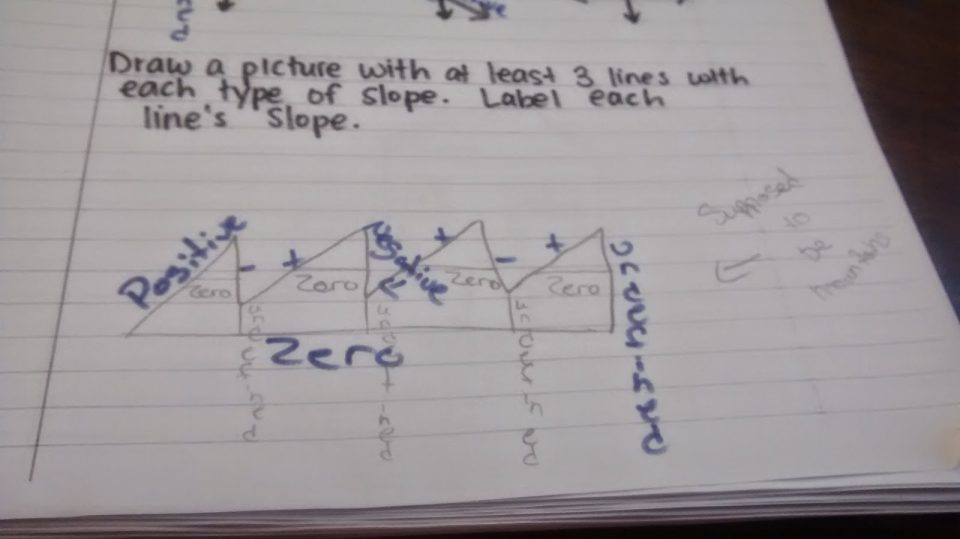 Draw a picture with at least 3 lines with
each type of slope. Label each
line's slope.
Positive
-
+
Negative
+
-
+
zero
zero
zero
zero
Zero
undefined
undefined
undefined
undefined
Supposed
to
be
mountains